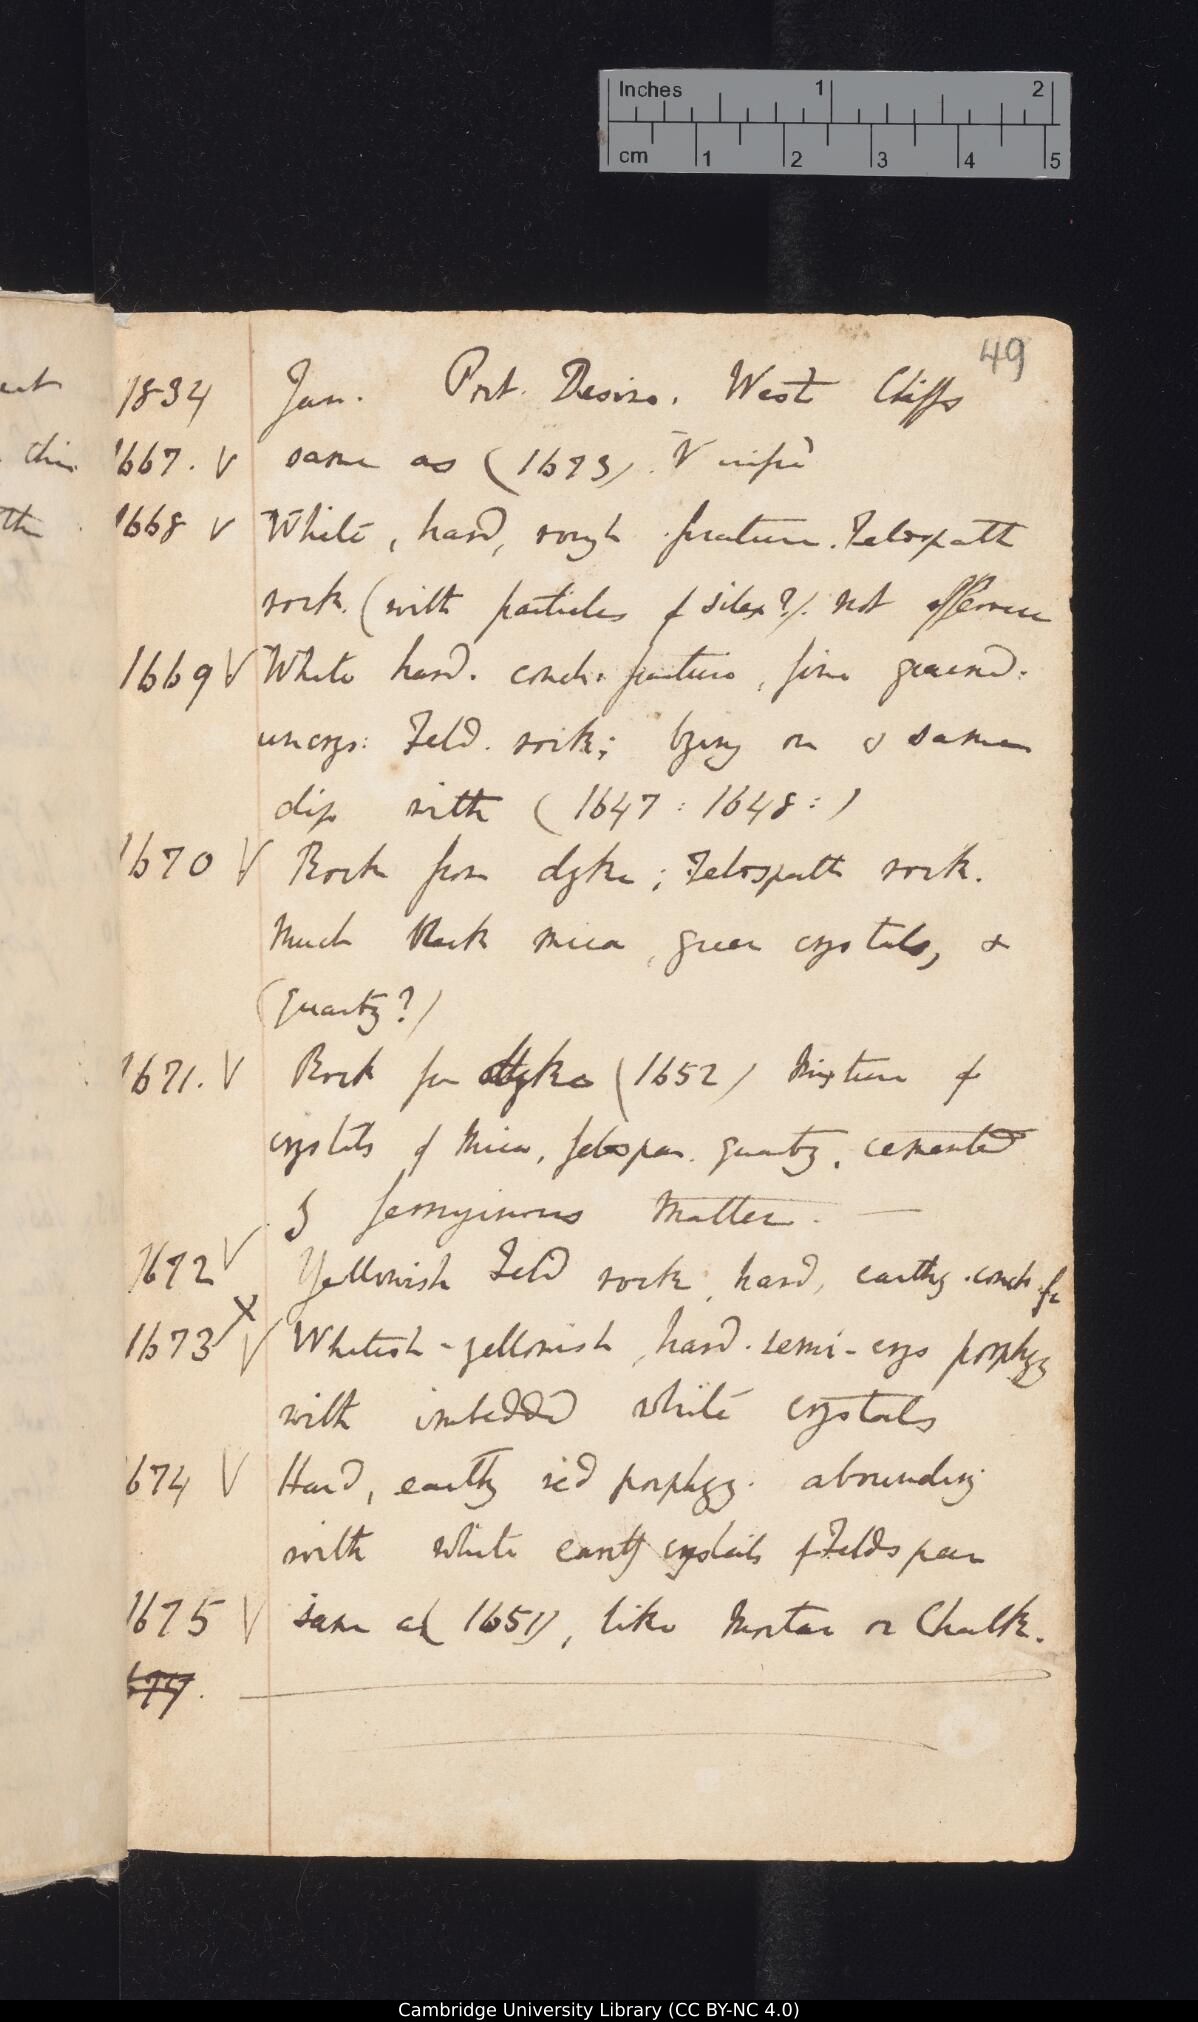 Inches 1 2
cm 1 2 3 4 5
49
1834 Jan. Port. Desire. West Cliffs
1667. V same as (1673). V infra
1668 V White, hard, rough fracture. Felospath
rock. (with particles of silex?). not efferve
1669 V White hard. conch: fracture, fine grained:
uncrys: Feld. rock; lying on & same
dip with (1647: 1648:)
1670 V Rock from dyke; Felospath rock.
Much black mica, green crystals, &
(quartz?)
1671. V Rock from dyke (1652) Mixture of
crystals of Mica, felspar. quartz, cemented
by ferruginous matter. —
1672 V Yellowish Feld rock, hard, earthy. conch. fr
1673 X V Whitish-yellowish, hard. semi-crys porphyry
with imbedded white crystals
1674 V Hard, earthy red porphyry. abounding
with white earthy crystals of Feldspar
1675 V same as (1651), like Mortar or Chalk.
Cambridge University Library (CC BY-NC 4.0)